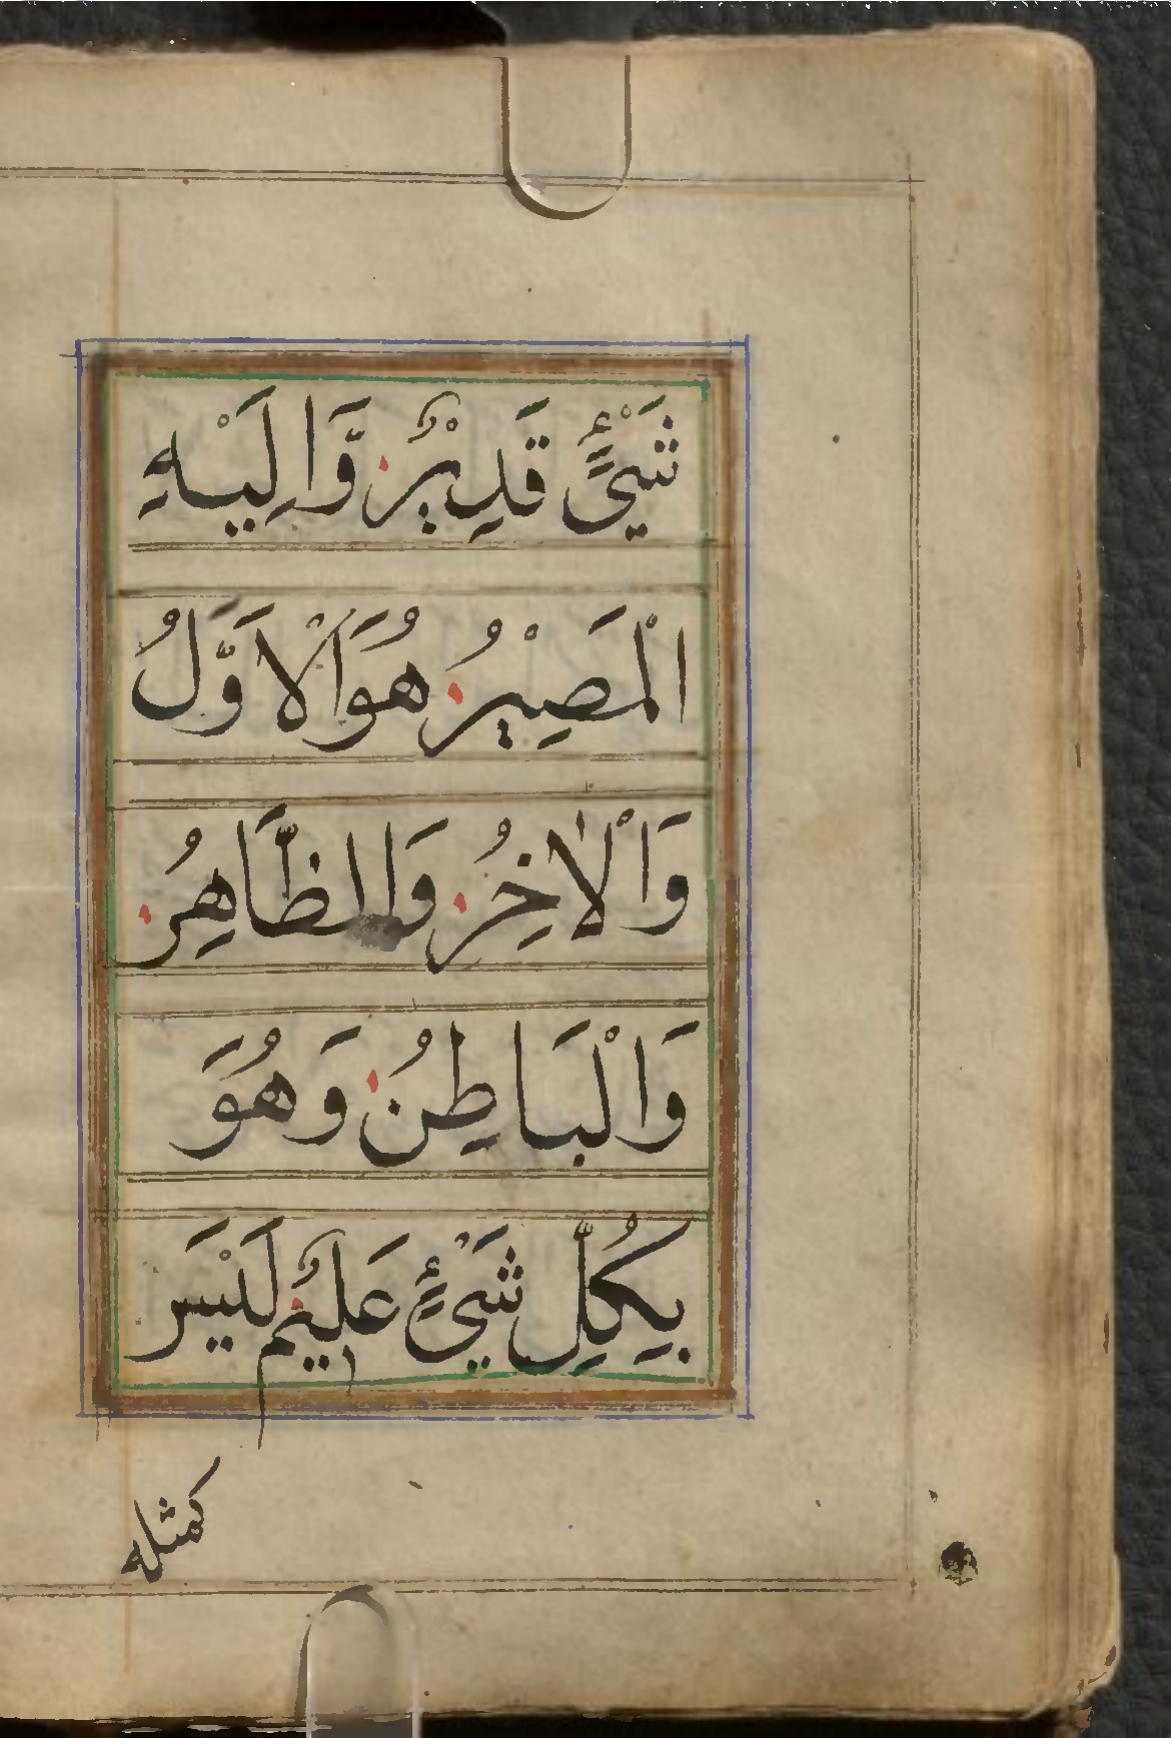 شَيْئٍ قَدِيْرٌ وَّاِلَيْهِ
الْمَصِيْرُ هُوَالْاَوَّلُ
وَالْاٰخِرُ وَالظَّاهِرُ
وَالْبَاطِنُ وَهُوَ
بِكُلِّ شَيْئٍ عَلِيْمٌ لَيْسَ
كمثله